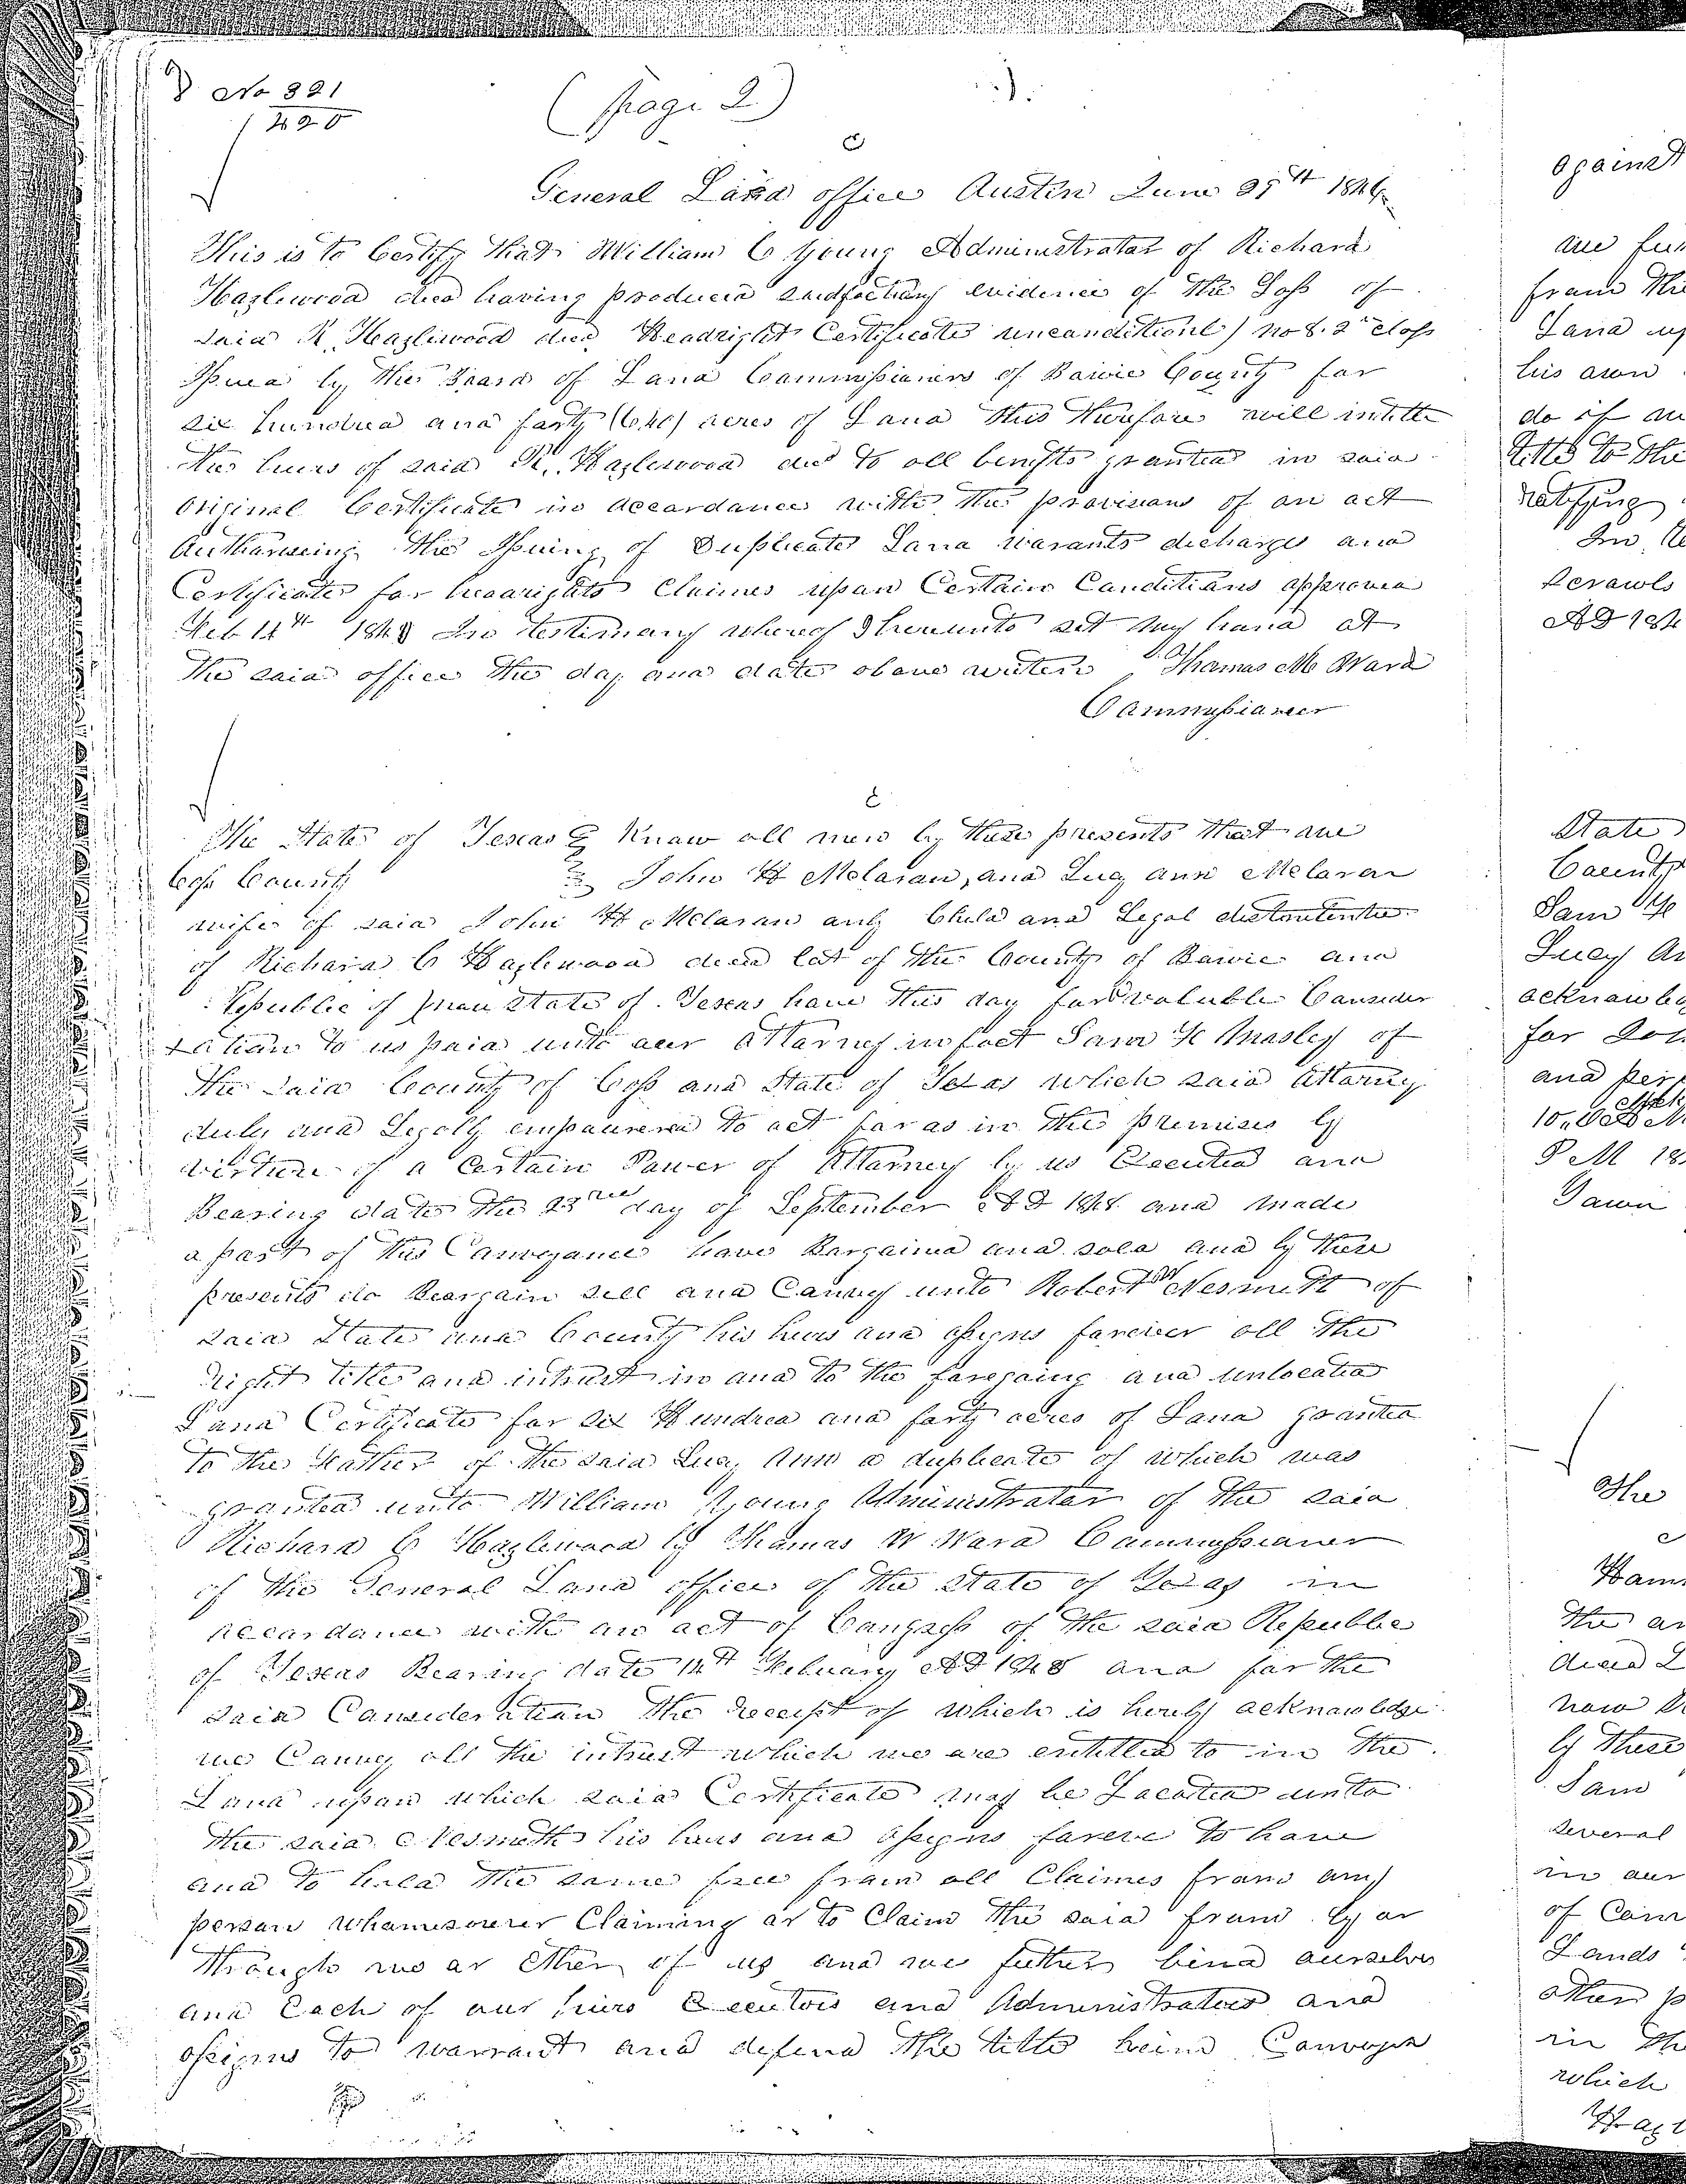 No 321
1420
(page 2)
General Land office Austin June 25th 1846
This is to Certify that William C Young Administrator of Richard
Hazlewood decd having produced satisfactory evidence of the Loss of
said R. Hazlewood decd Headright Certificate unconditional) no 8. 2d Class
Issued by the Board of Land Commissioners of Bowie County for
six hundred and forty (640) acres of Land this therefore will intitle
the heirs of said R. Hazlewood decd to all benifits granted in said
original Certificate in accordance with the provisions of an act
Authorising the Issuing of Duplicate Land warants discharges and
Certificates for headrights Claimes upon Certain Conditions approved
Feb 14th 1840 In testimony whereof I hereunto set my hand at
The said office the day and date above writen Thomas M Ward
Commissioner
The State of Texas Know all men by these presents that we
Cass County John H Melaran, and Lucy ann Melaran
wife of said John H Melaran only Child and Legal
of Richard C Hazlewood decd lat of the County of Bowie and
Republic of now State of Texas have this day for valuble Consider
ration to us paid unto our Attorney in fact Sam H Mosley of
the said County of Cass and State of Texas which said Attorney
duly and Legally empowered to act for us in the premises by
virture of a Certain Power of Attorney by us Executed and
Bearing date the 23rd day of September AD 1848 and made
a part of this Conveyance have Bargained and sold and by these
presents do Beargain sell and Convey unto Robert W Nesmith of
said State and County his heirs and assigns forever all the
right title and intrust in and to the foregoing and unlocated
Land Certificate for six Hundred and forty acres of Land granted
to the Father of the said Lucy Ann a duplicate of which was
granted unto William Young Administrator of the said
Richard C Hazlewood by Thomas W Ward Commissioner
of the General Land office of the State of Texas in
accordance with an act of Congress of the said Republic
of Texas Bearing date 14th Febuary AD 1840 and for the
said Consideration the receipt of which is hereby acknowledge
we Convey all the intrust which we are entitled to in the
Land upon which said Certificate may be Located unto
the said Nesmith his heirs and assigns forever to have
and to hold the same free from all Claimes from any
person whomsoever Claiming or to Claim the said from by or
through us or Either of us and we futher bind ourselves
and Each of our heirs Executors and Administrators and
assigns to warrant and defend the title herein Conveyed
against
from the
his own
do if
title to the
Ratifying
Scrawls
State
County
Sam H
Lucy An
acknowled
for
and per
10 o'clock
P M 18
The
Ham
now
by these
Sam
several
in our
of Com
Lands
other p
in th
which